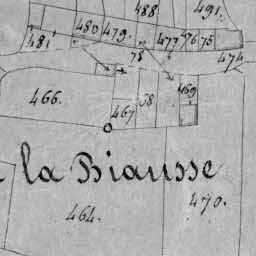 488
491.
480
479.
481
477
76
75
78
474
466.
467
68
469
la Biausse
464.
470.